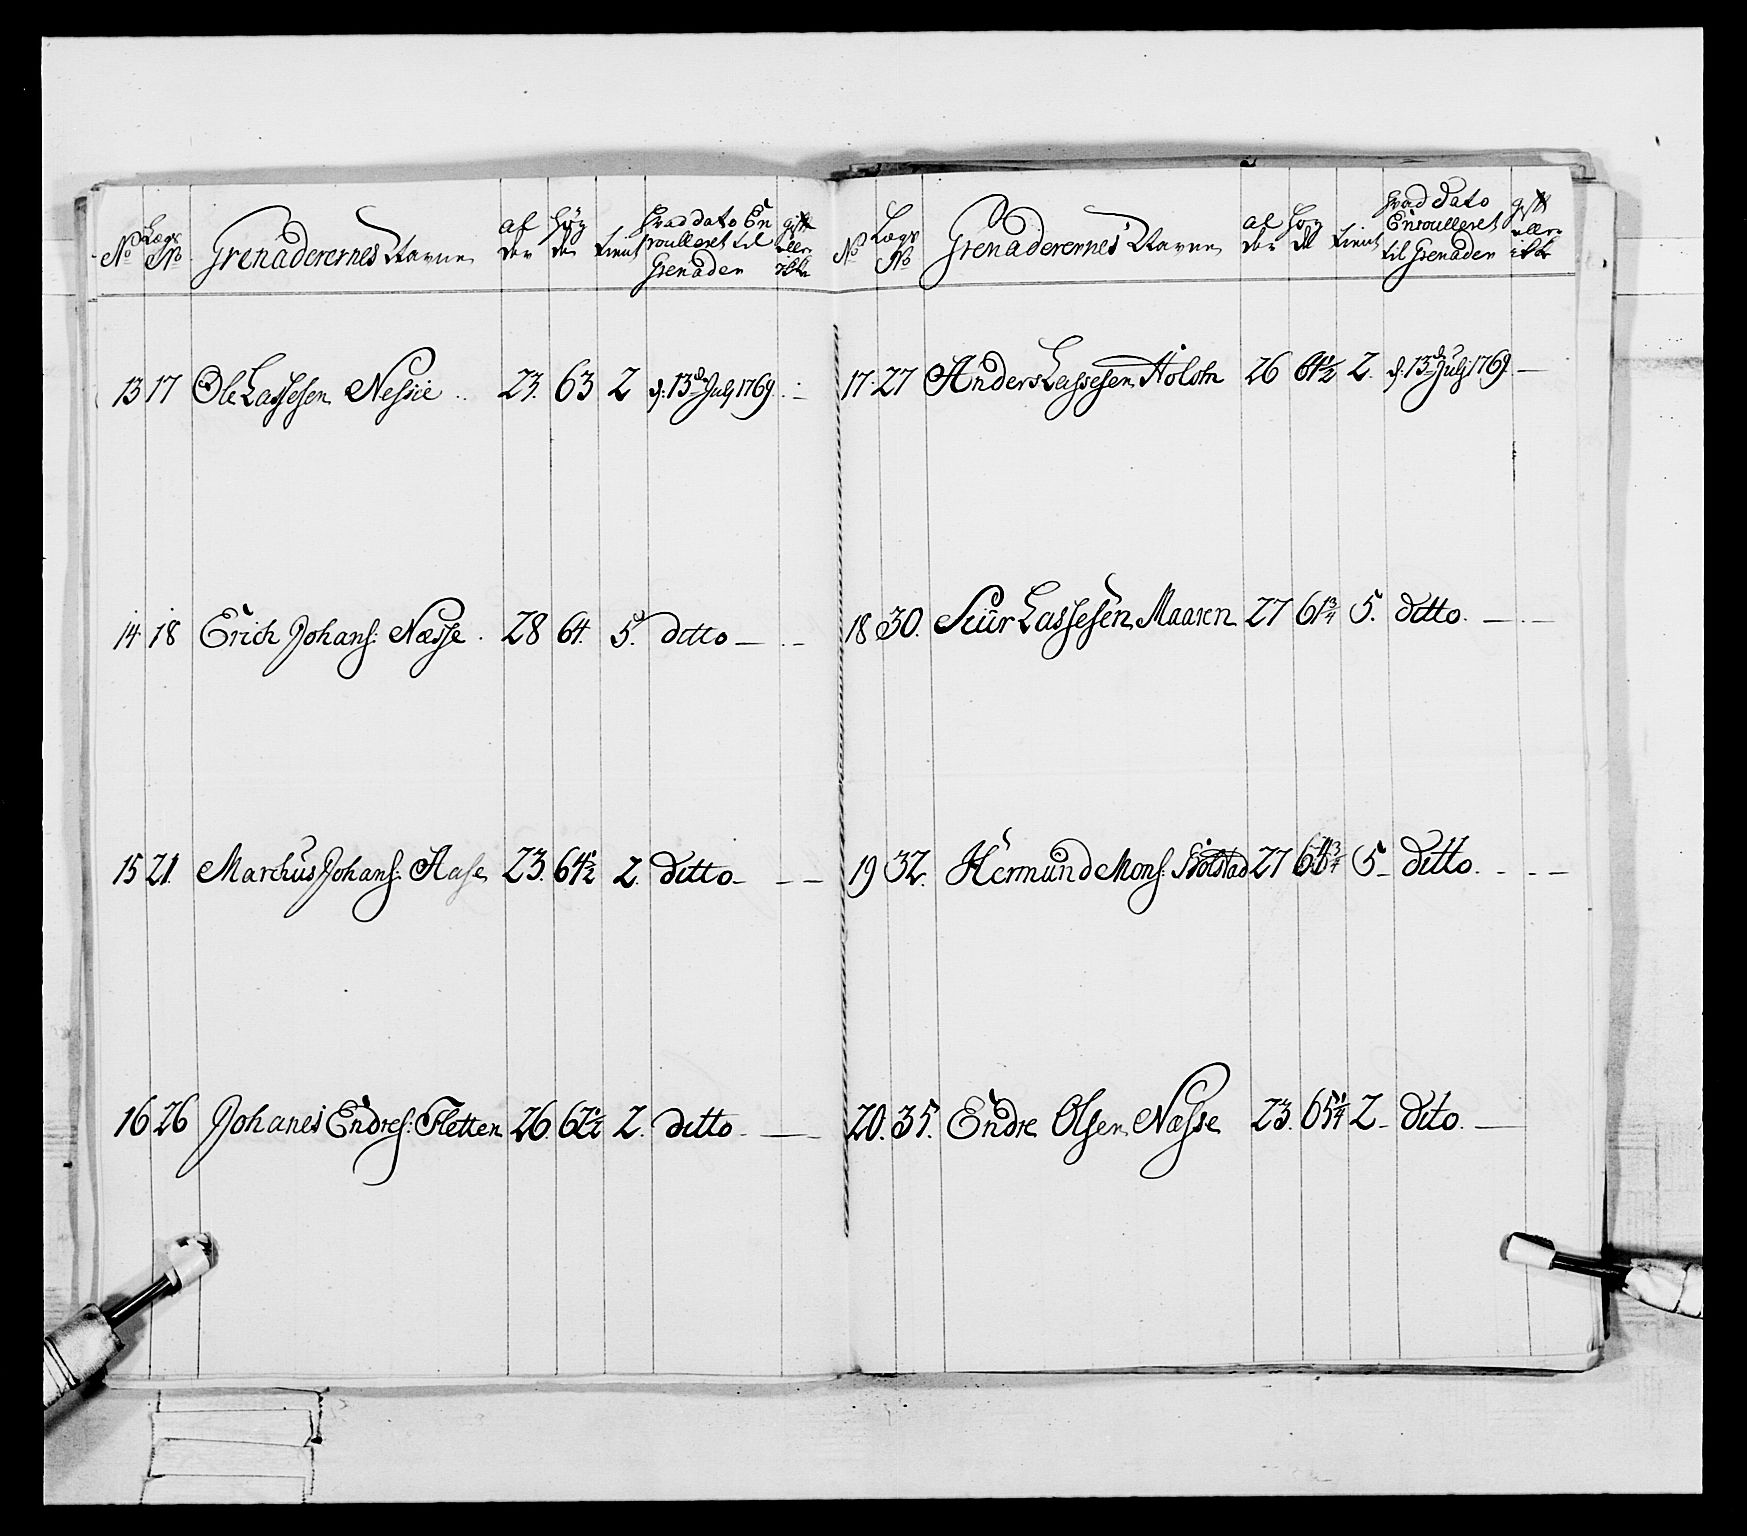 No Lægs No Grenaderernes Navne alder Høyde tient hvad dato Enroulleret til Grenadeer gift eller ikke
13 17 Ole Lassesen Nessie .. 23. 63 2 d: 13de July 1769. . —
14 18 Erich Johans: Næsse . 28 64. 5. ditto — . . —
15 21. Marchus Johans: Aase 23. 64½ 2. ditto — — —
16 26 Johanes Endres: Fletten 26. 62½ 2. ditto. —
No Lægs No Grenaderernes Navne alder Høyde tient hvad dato Enroulleret til Grenadeer gift eller ikke
17. 27 Anders Lassesen Holstn 26 61½ 2. d. 13de July 1769. —
18 30. Siur Lassesen Maaren 27 61¾ 5. ditto. — . —
19 32. Hermund Mons: 27 5 — ditto. . — —
20. 35. Endre Olsen Næsse 23. 65¼ 2 — dito. —